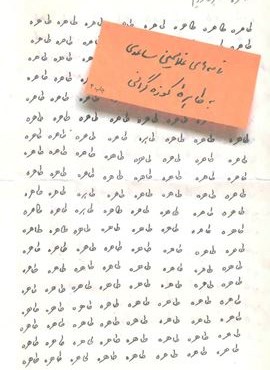 طاهره طاهره طاهره طاهره طاهره طاهره طاهره طاهره
نامه‌های غلامحسین ساعدی
به طاهرهٔ کوزه گرانی
چاپ ۲
طاهره طاهره
طاهره طاهره
طاهره طاهره
طاهره طاهره
طاهره طاهره
طاهره طاهره طاهره طاهره طاهره طاهره طاهره طاهره
طاهره طاهره طاهره طاهره طاهره طاهره طاهره طاهره
طاهره طاهره طاهره طاهره طاهره طاهره طاهره طاهره
طاهره طاهره طاهره طاهره طاهره طاهره طاهره طاهره
طاهره طاهره طاهره طاهره طاهره طاهره طاهره طاهره
طاهره طاهره طاهره طاهره طاهره طاهره طاهره طاهره
طاهره طاهره طاهره طاهره طاهره طاهره طاهره طاهره
طاهره طاهره طاهره طاهره طاهره طاهره طاهره طاهره
طاهره طاهره طاهره طاهره طاهره طاهره طاهره طاهره
طاهره طاهره طاهره طاهره طاهره طاهره طاهره طاهره
طاهره طاهره طاهره طاهره طاهره طاهره طاهره طاهره
طاهره طاهره طاهره طاهره طاهره طاهره طاهره طاهره
طاهره طاهره طاهره طاهره طاهره طاهره طاهره طاهره